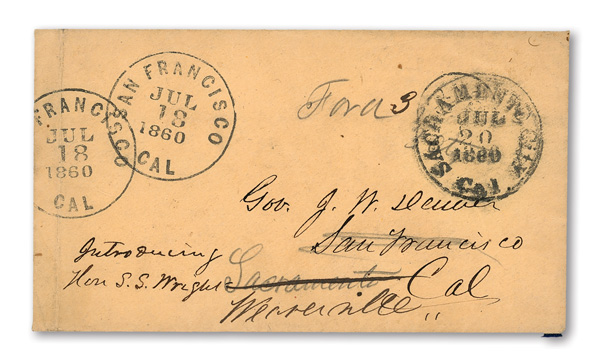 SAN FRANCISCO
JUL
18
1860
CAL
FRANCISCO
JUL
18
1860
CAL
Ford 3
SACRAMENTO CITY
JUL
20
1860
Cal.
Gov. J. W. Denver
San Francisco
Introducing
Hon S. S. Wright
Sacramento Cal
Weiverville,,